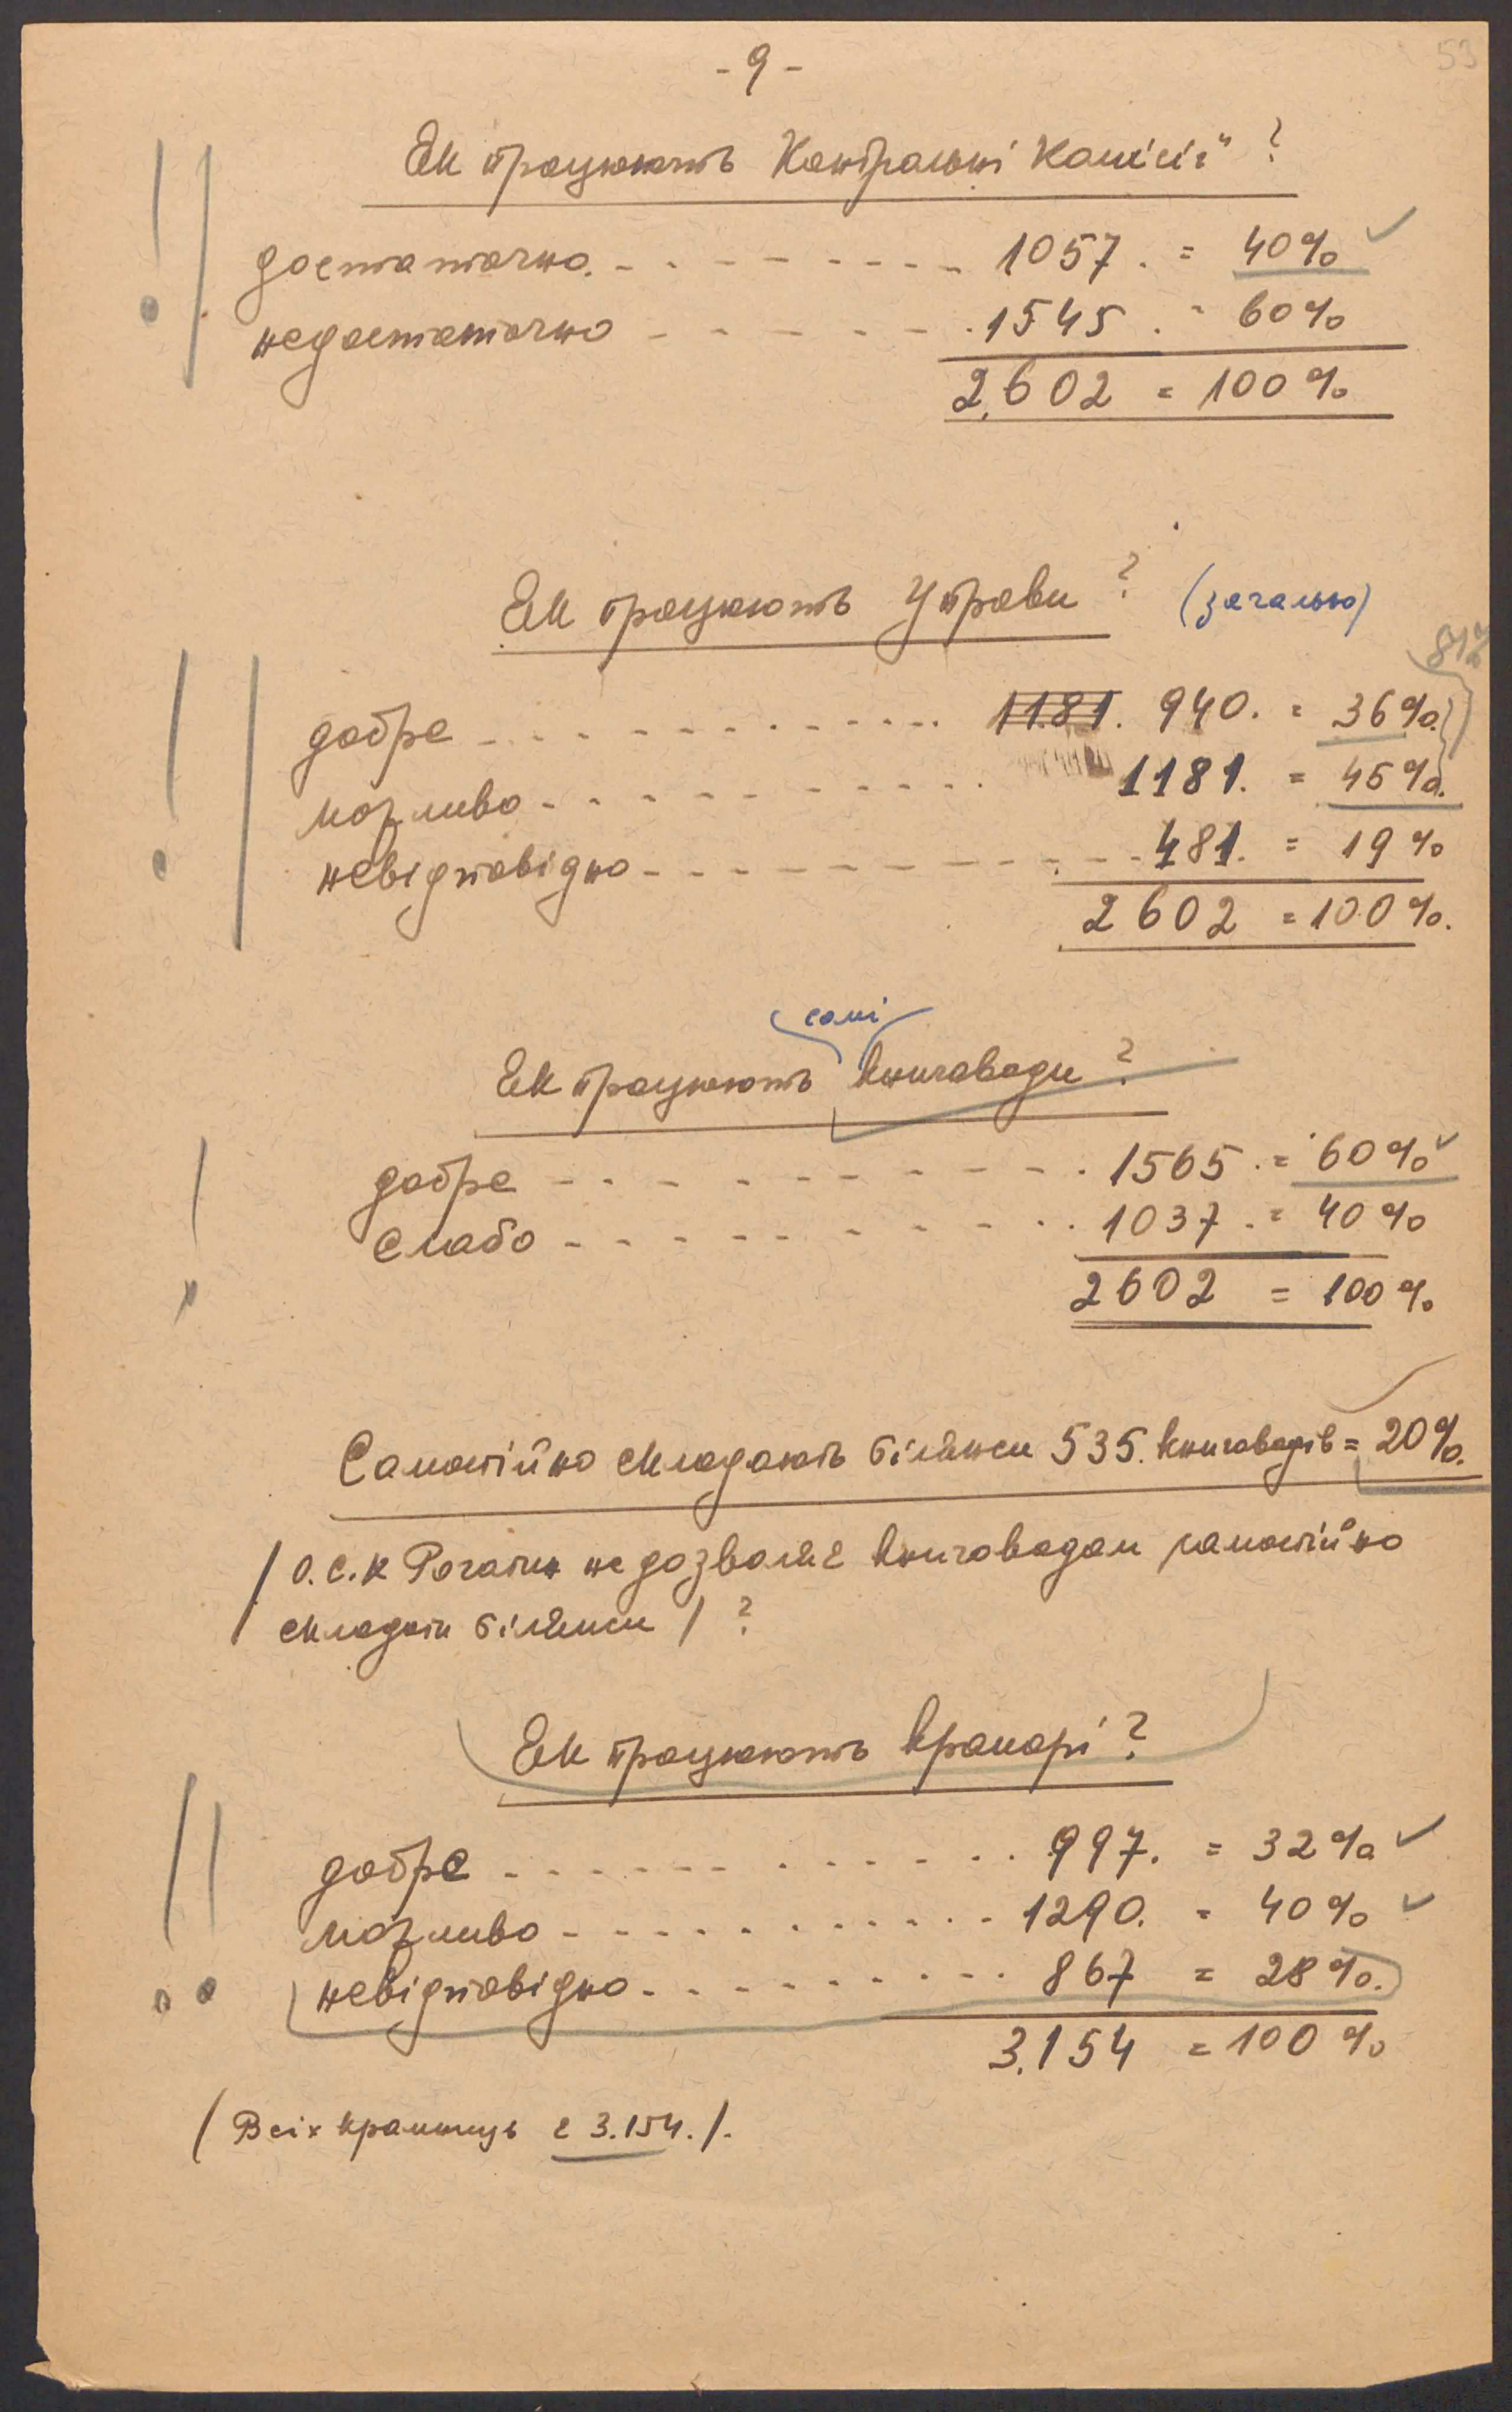 53
- 9 -
Як працюють Контрольні Комісії ?
достаточно. - - - - - - - - 1057. = 40%
недостаточно - - - - - - - 1545. = 60%
2.602 = 100%
Як працюють Управи ? (загально)
81%
добре - - - - - - - - - - 1181. 940. = 36%.
можливо - - - - - - - - - 1181. = 45%.
невідповідно - - - - - - - - - 481. = 19%
2602 = 100%.
самі
Як працюють книговоди ?
добре - - - - - - - - - - 1565. = 60%
слабо - - - - - - - - - - 1037. = 40%
2602 = 100%.
Самостійно складають білянси 535. книговодів = 20%.
/ О.С.К Рогатин не дозваляє книговодам самостійно
складати білянси / ?
Як працюють крамарі ?
добре - - - - - - - - - - - 997. = 32%
можливо - - - - - - - - - - 1290. = 40%
невідповідно - - - - - - - - - 867 = 28%.
3.154 = 100%
/ Всіх крамниць є 3.154. /.